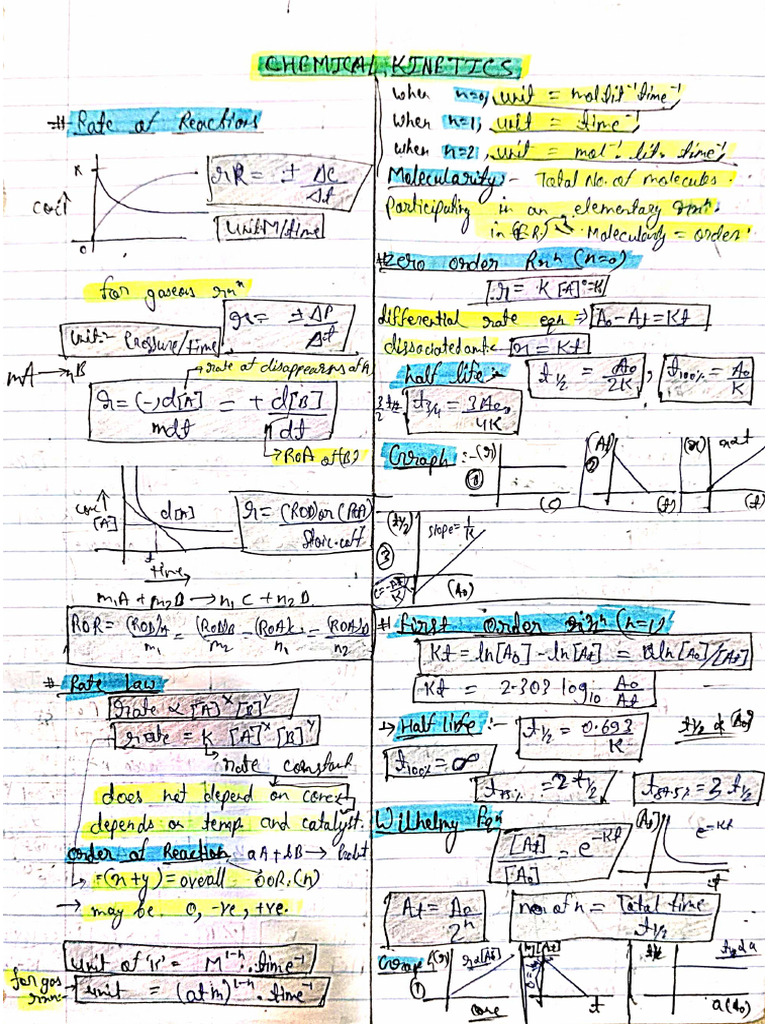 CHEMICAL KINETICS
# Rate of Reactions
K
conc↑
0
rR = ± Δc/Δt
Unit M/time
for gaseous rxnⁿ
r = ± ΔP/Δt
Unit = Pressure/time
mA → nB
→ rate of disappearns of A
r = (-) d[A]/mdt = + d[B]/dt
→ RoA of (B)
conc↑
[A]
d[A]
t
time
r = (ROD) or (ROA)/Stoic. coff
m₁A + m₂B → n₁C + n₂D
ROR = (ROD)A/m₁ = (ROD)B/m₂ = (ROA)c/n₁ = (ROA)D/n₂
# Rate Law
rate ∝ [A]ˣ [B]ʸ
rate = K [A]ˣ [B]ʸ
→ rate constant
does not depend on conc
depends on temp and catalyst.
order of Reaction aA + bB → Prodt
→ =(x+y) = overall OOR. (n)
→ may be 0, -ve, +ve.
unit of 'K' = M¹⁻ⁿ . time⁻¹
for gas rxn:- unit = (atm)¹⁻ⁿ . time⁻¹
when n=0, unit = mol lit⁻¹ time⁻¹
when n=1, unit = time⁻¹
when n=2, unit = mol⁻¹. lit. time⁻¹
Molecularity:- Total No. of molecules
Participating in an elementary rxnⁿ.
in (ER) Molecularity = order.
# Zero order Rxnⁿ (n=0)
r = K [A]⁰ = K
differential rate eqn ⇒ A₀ - At = Kt
dissociated amt:- x = Kt
half life :- t½ = A₀/2K , t100% = A₀/K
t3/4 = 3A₀/4K
Graph :-
(r)
①
(c)
(At)
②
(t)
(x)
x∝t
(t)
(t½)
slope = 1/K
③
(A₀)
# First order rxnⁿ (n=1)
Kt = ln[A₀] - ln[At] = ln[A₀]/[At]
Kt = 2.303 log₁₀ A₀/At
→ Half life :- t½ = 0.693/K
t100% = ∞
t75% = 2 t½
t87.5% = 3 t½
Wilhelmy Eqⁿ
[At]/[A₀] = e⁻ᴷᵗ
[At]
e⁻ᴷᵗ
t
At = A₀/2ⁿ
no. of n = Total time/t½
Graph
(r)
①
conc
t
t½
a(A₀)